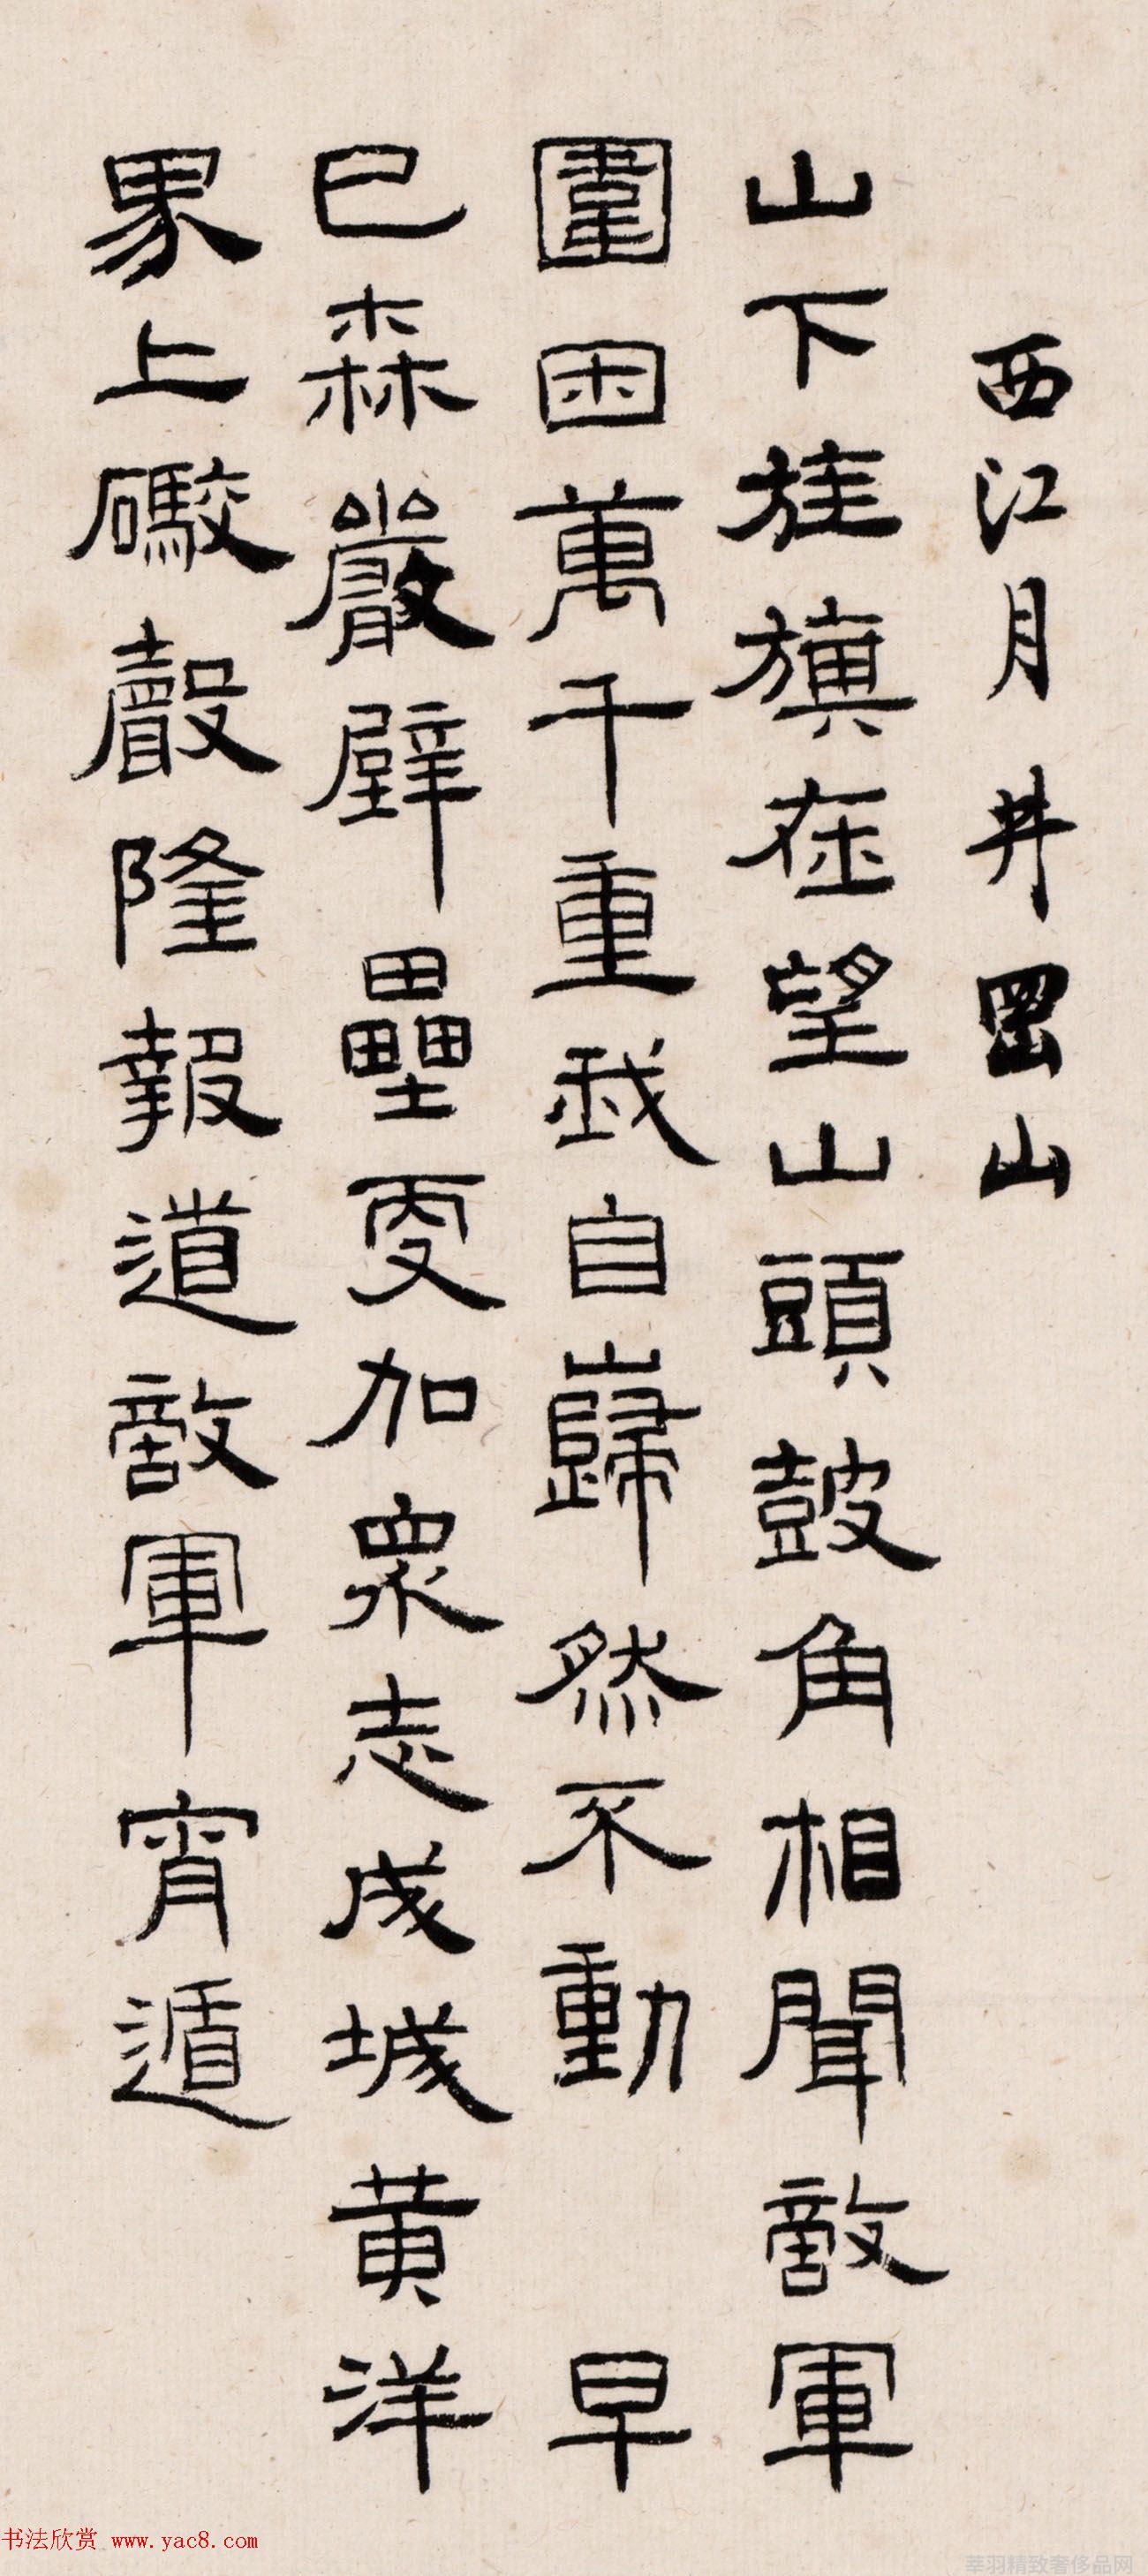 西江月 井岡山
山下旌旗在望山頭鼓角相聞敵軍
圍困萬千重我自巋然不動 早
已森嚴壁壘更加衆志成城黄洋
界上礮聲隆報道敵軍宵遁
书法欣赏 www.yac8.com
莘羽精致奢侈品网